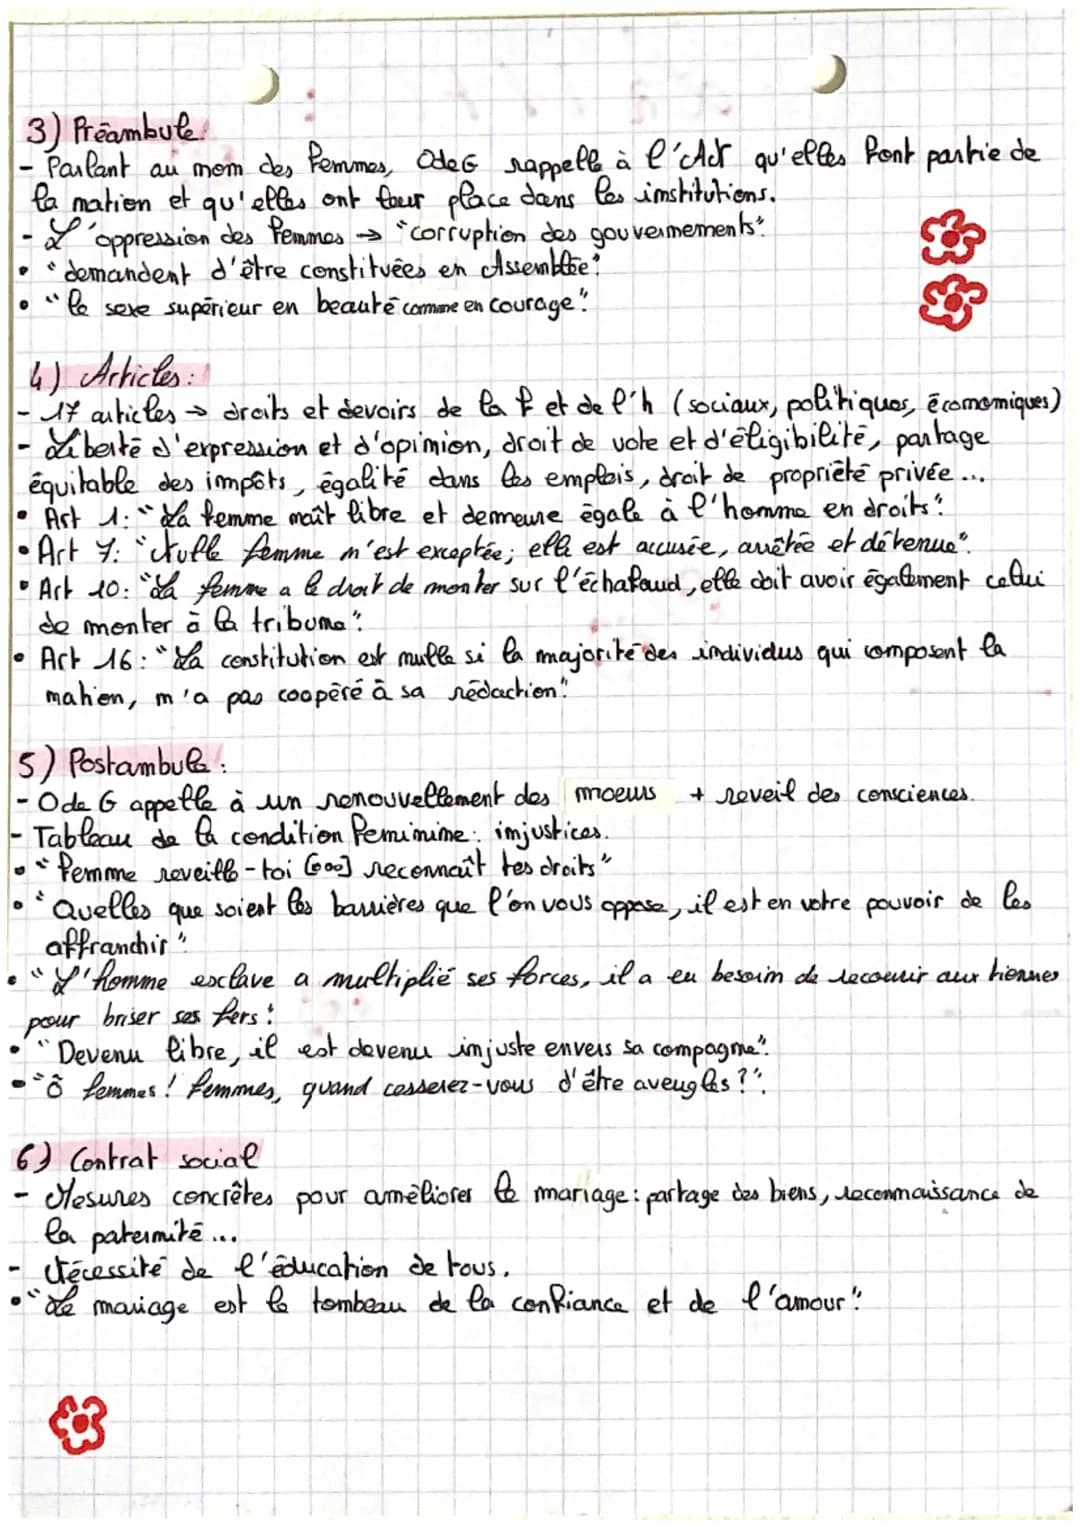 3) Préambule:
- Parlant au nom des femmes, OdeG rappelle à l'AN qu'elles font partie de
la nation et qu'elles ont leur place dans les institutions.
- L'oppression des femmes → "corruption des gouvernements".
• "demandent d'être constituées en Assemblée".
• "le sexe supérieur en beauté comme en courage".
4) Articles:
- 17 articles → droits et devoirs de la f et de l'h (sociaux, politiques, économiques)
- Liberté d'expression et d'opinion, droit de vote et d'éligibilité, partage
équitable des impôts, égalité dans les emplois, droit de propriété privée...
• Art 1: "La femme naît libre et demeure égale à l'homme en droits".
• Art 7: "Nulle femme n'est exceptée; elle est accusée, arrêtée et détenue".
• Art 10: "La femme a le droit de monter sur l'échafaud, elle doit avoir également celui
de monter à la tribune".
• Art 16: "La constitution est nulle si la majorité des individus qui composent la
nation, n'a pas coopéré à sa rédaction".
5) Postambule:
- OdeG appelle à un renouvellement des moeurs + reveil des consciences.
- Tableau de la condition féminine: injustices.
• "Femme reveille-toi [...] reconnaît tes droits"
• "Quelles que soient les barrières que l'on vous oppose, il est en votre pouvoir de les
affranchir"
• "L'homme esclave a multiplié ses forces, il a eu besoin de recourir aux tiennes
pour briser ses fers".
• "Devenu libre, il est devenu injuste envers sa compagne".
• "Ô femmes! femmes, quand cesserez-vous d'être aveugles?".
6) Contrat social
- Mesures concrètes pour améliorer le mariage: partage des biens, reconnaissance de
la paternité...
- Nécessité de l'éducation de tous.
• "Le mariage est le tombeau de la confiance et de l'amour".